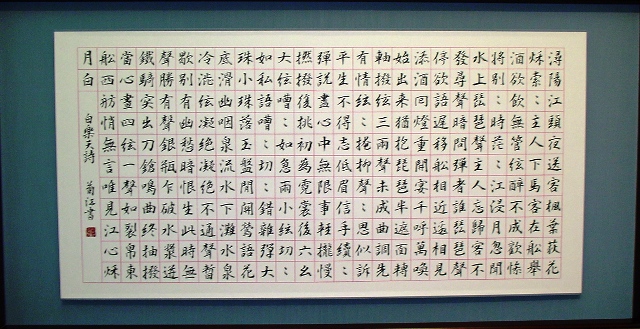 潯陽江頭夜送客楓葉荻花
秋索〻主人下馬客在船舉
酒欲飲無管絃醉不成歡慘
將別〻時茫〻江浸月忽聞
水上琵琶聲主人忘歸客不
發尋聲暗問彈者誰琵琶聲
停欲語遲移船相近邀相見
添酒回燈重開宴千呼萬喚
始出来猶抱琵琶半遮面轉
軸撥絃三兩聲未成曲調先
有情絃〻掩抑聲〻思似訴
平生不得志低眉信手續〻
彈說盡心中無限事輕攏慢
撚撥復挑初為霓裳後六幺
大絃嘈〻如急雨小絃切〻
如私語嘈〻切〻錯雜彈大
珠小珠落玉盤間關鶯語花
底滑幽咽泉流水下灘水泉
冷澁絃凝絶凝絶不通聲暫
歇別有幽愁暗恨生此時無
聲勝有聲銀瓶乍破水漿迸
鐵騎突出刀鎗鳴曲終抽撥
當心畫四絃一聲如裂帛東
船西舫悄無言唯見江心秋
月白
白樂天詩 菊江書